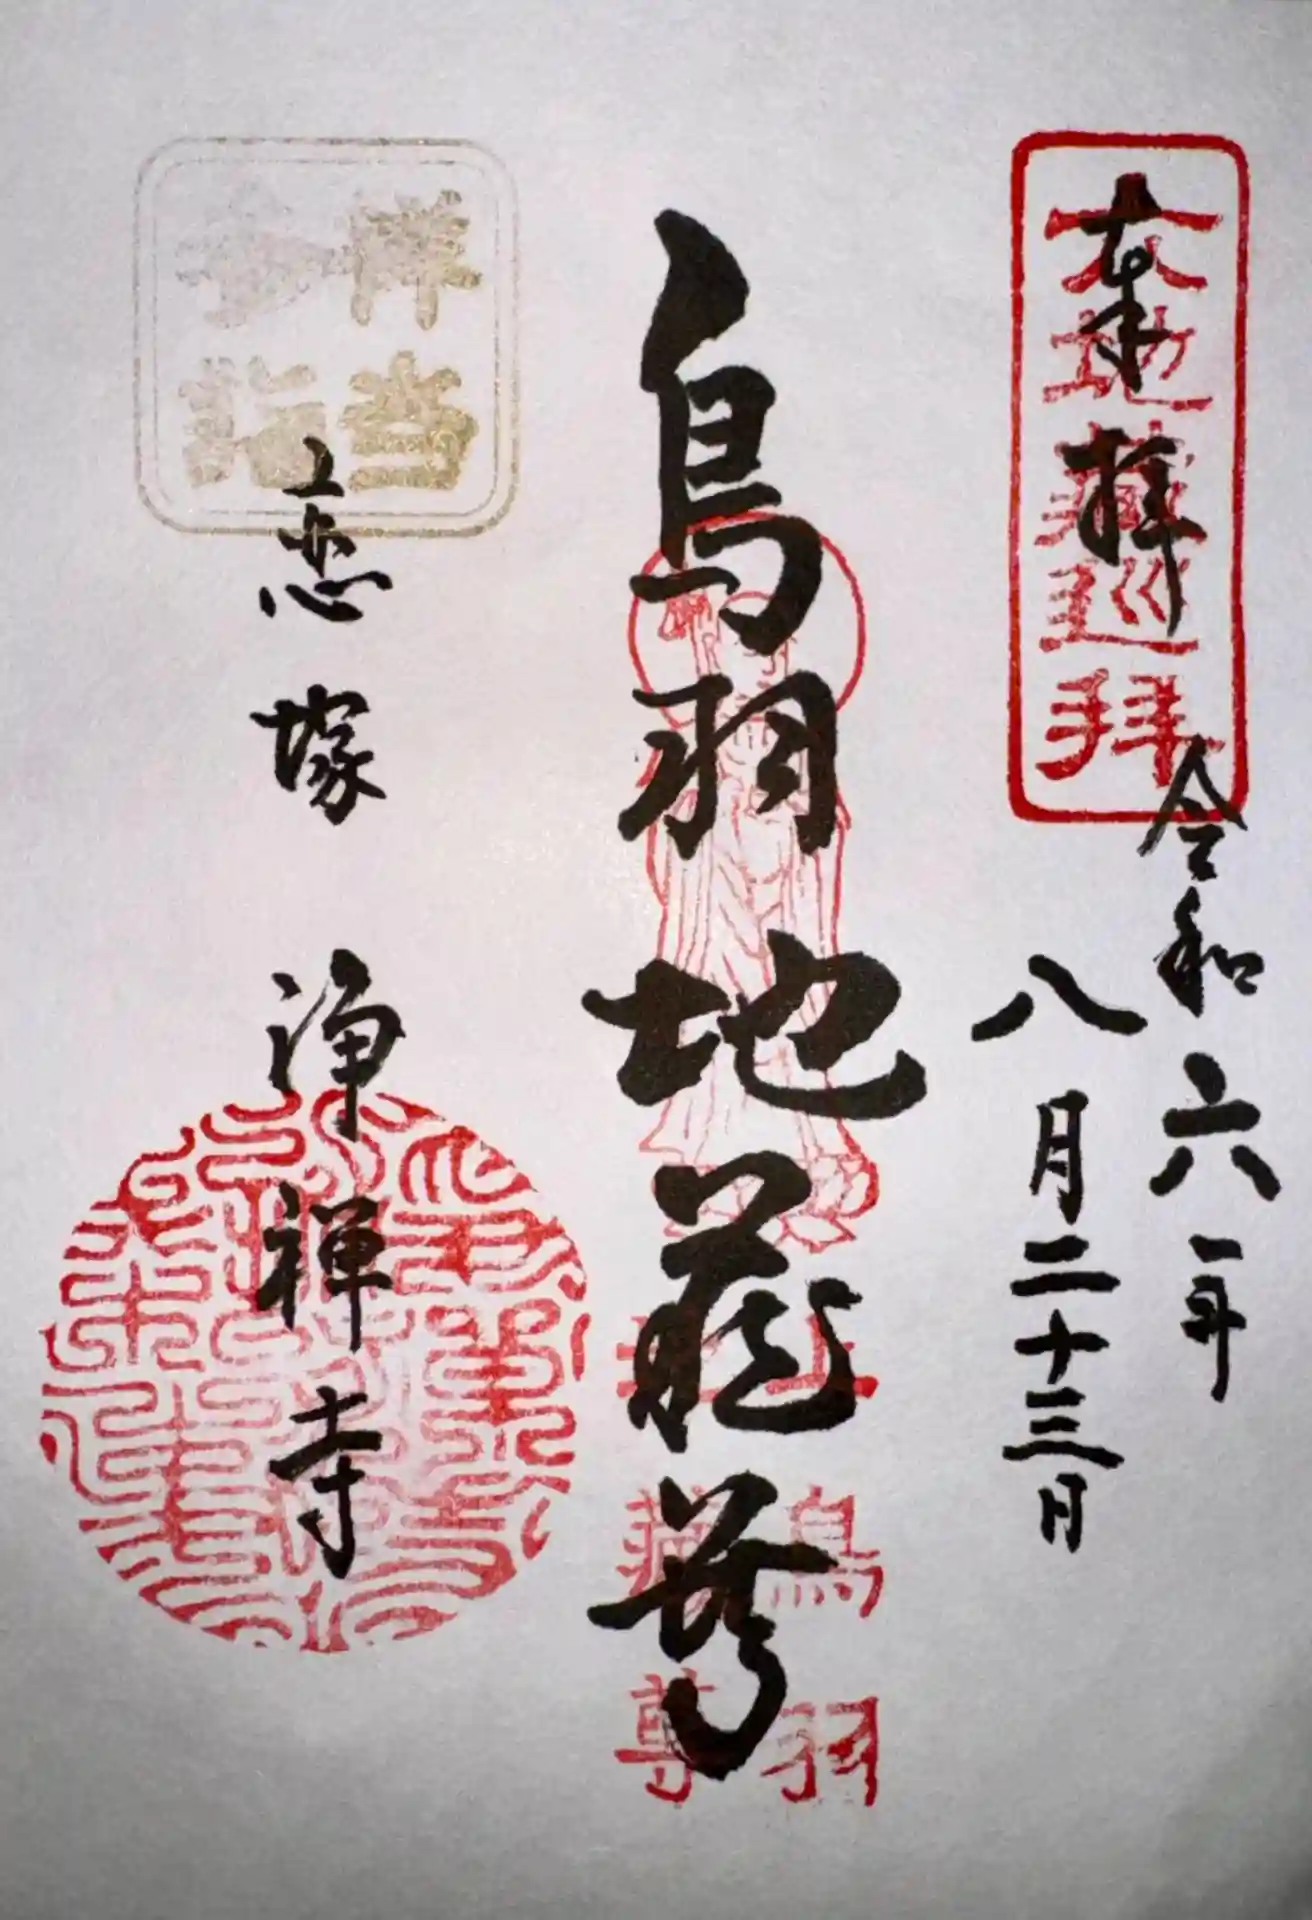 六地藏巡拝
奉拝
令和六年
八月二十三日
鳥羽地蔵尊
上鳥羽
地藏尊
恋塚 浄禅寺